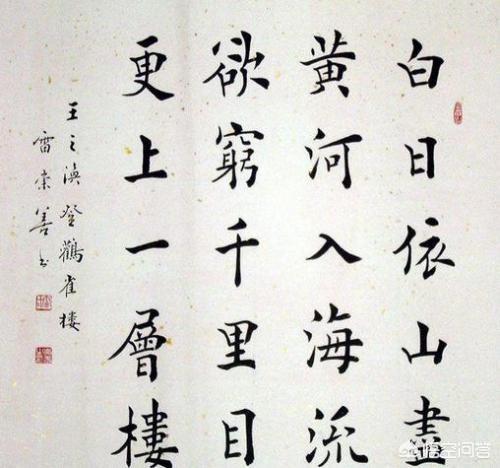 白日依山盡
黃河入海流
欲窮千里目
更上一層樓
王之渙登鸛雀樓
雷崇善书
悟空问答